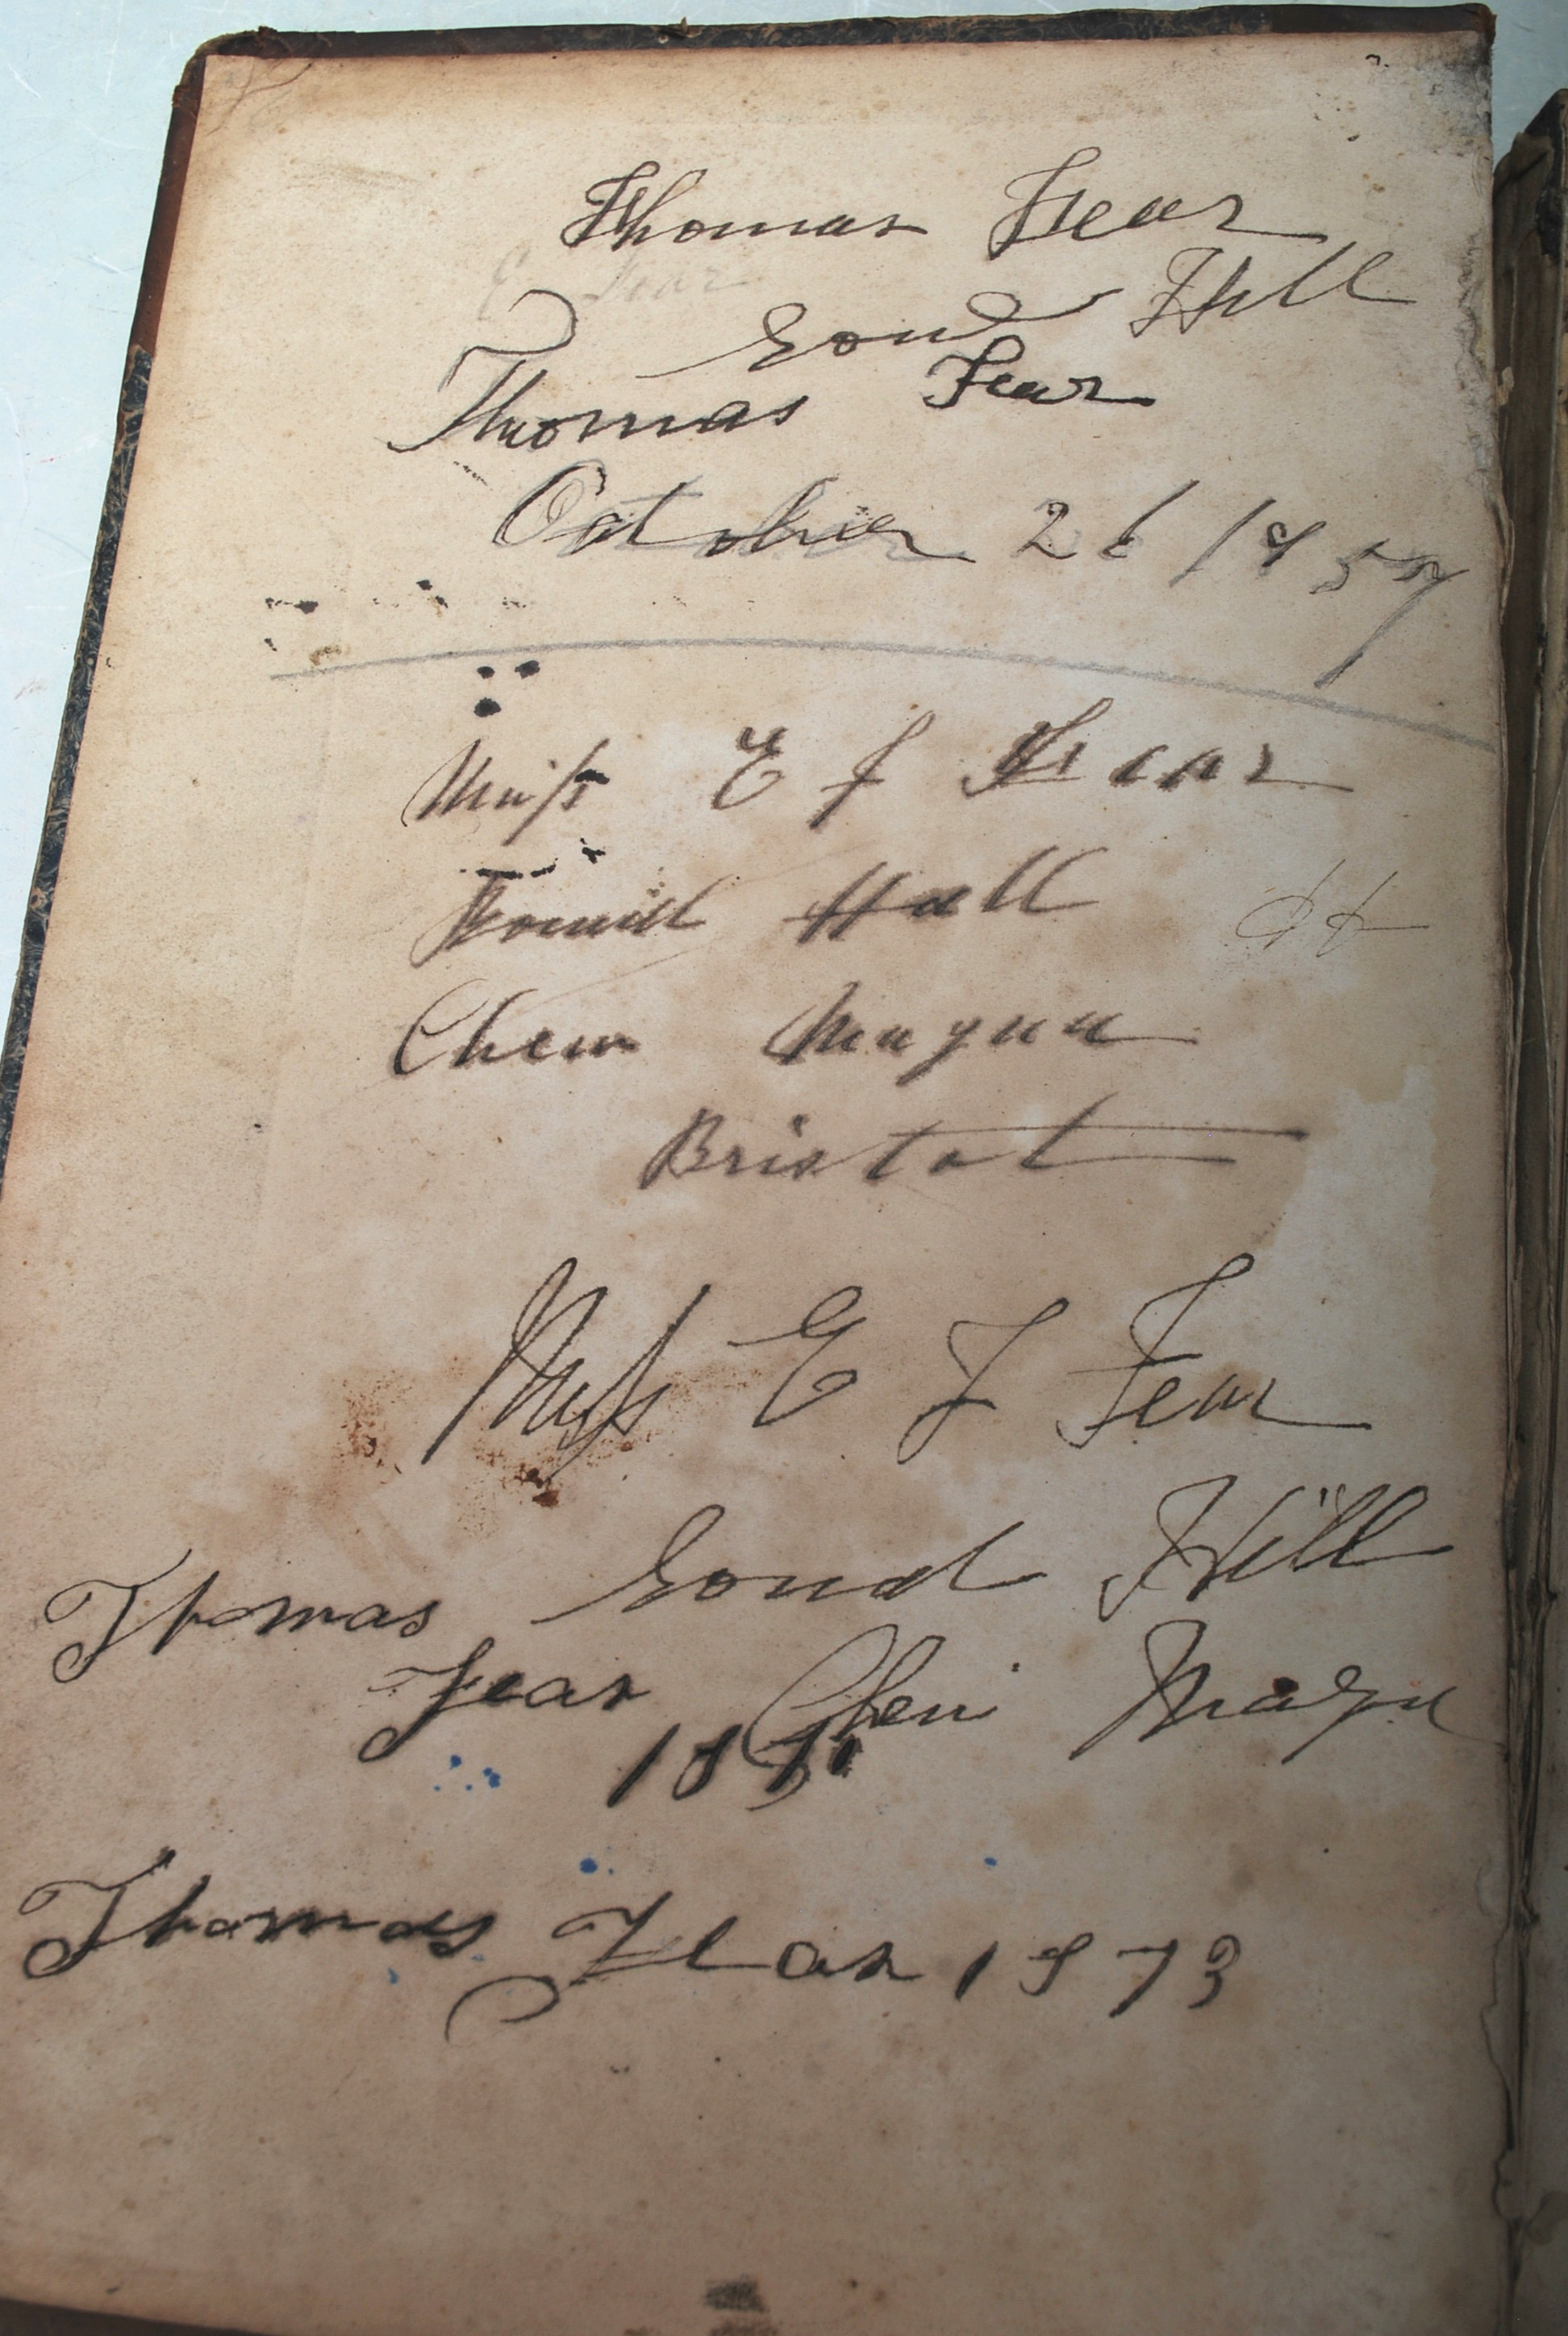 Thomas Fear
E Fear
Hill
Thomas Fear
October 26 1857
Miss E J Fear
Hall
Chew Magna
Bristol
Miss E J Fear
Hill
Thomas
Fear Chew Magna
Thomas Fear 1873